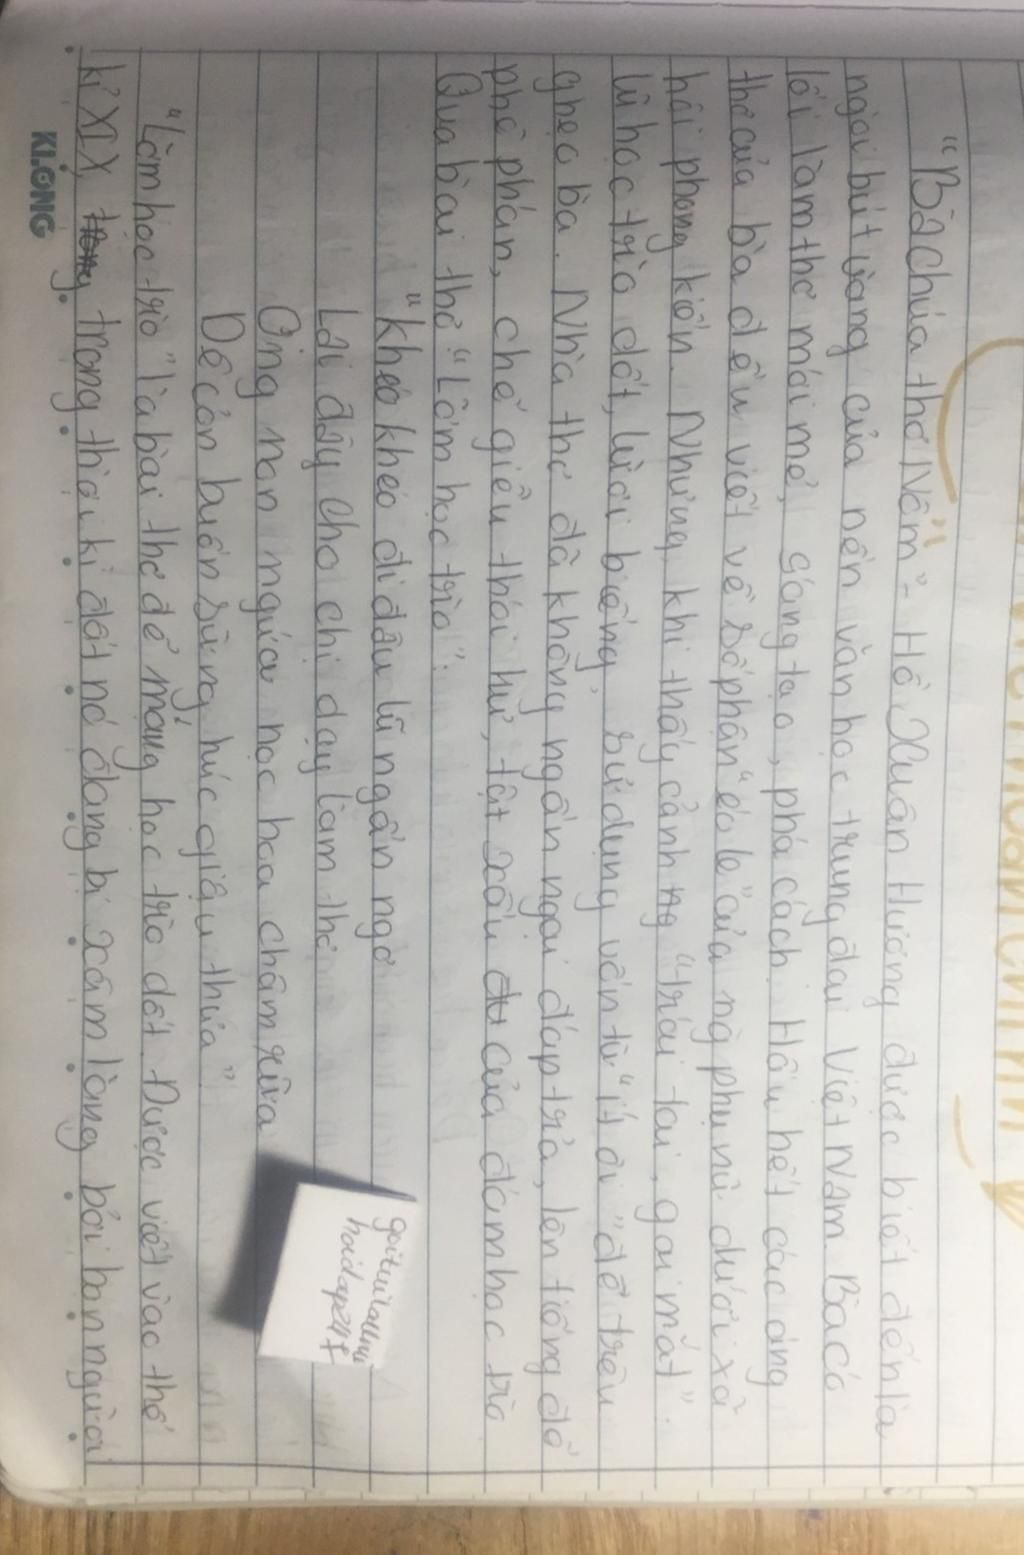 "Bà chúa thơ Nôm" - Hồ Xuân Hương được biết đến là
ngòi bút vàng của nền văn học trung đại Việt Nam. Bà có
lối làm thơ mới mẻ, sáng tạo, phá cách. Hầu hết các áng
thơ của bà đều viết về số phận "éo le" của ng phụ nữ dưới xã
hội phong kiến. Nhưng, khi thấy cảnh "trái tai, gai mắt"
lũ học trò dốt, lười biếng, sử dụng vốn từ "ít ỏi" để trêu
ghẹo bà. Nhà thơ đã không ngần ngại đáp trả, lên tiếng để
phê phán, chế giễu thói hư, tật xấu của đám học trò
Qua bài thơ "Lỡm học trò":
"Khéo khéo đi đâu lũ ngẩn ngơ
Lại đây cho chị dạy làm thơ
Ong non ngứa nọc hoa châm rữa
Dê cỏn buồn sừng húc giậu thưa"
"Lỡm học trò" là bài thơ để mắng học trò dốt. Được viết vào thế
kỉ XIX, trong thời kì đất nó đang bị xâm lăng bởi bọn người
goituilallmi
hoidap247
KLONG